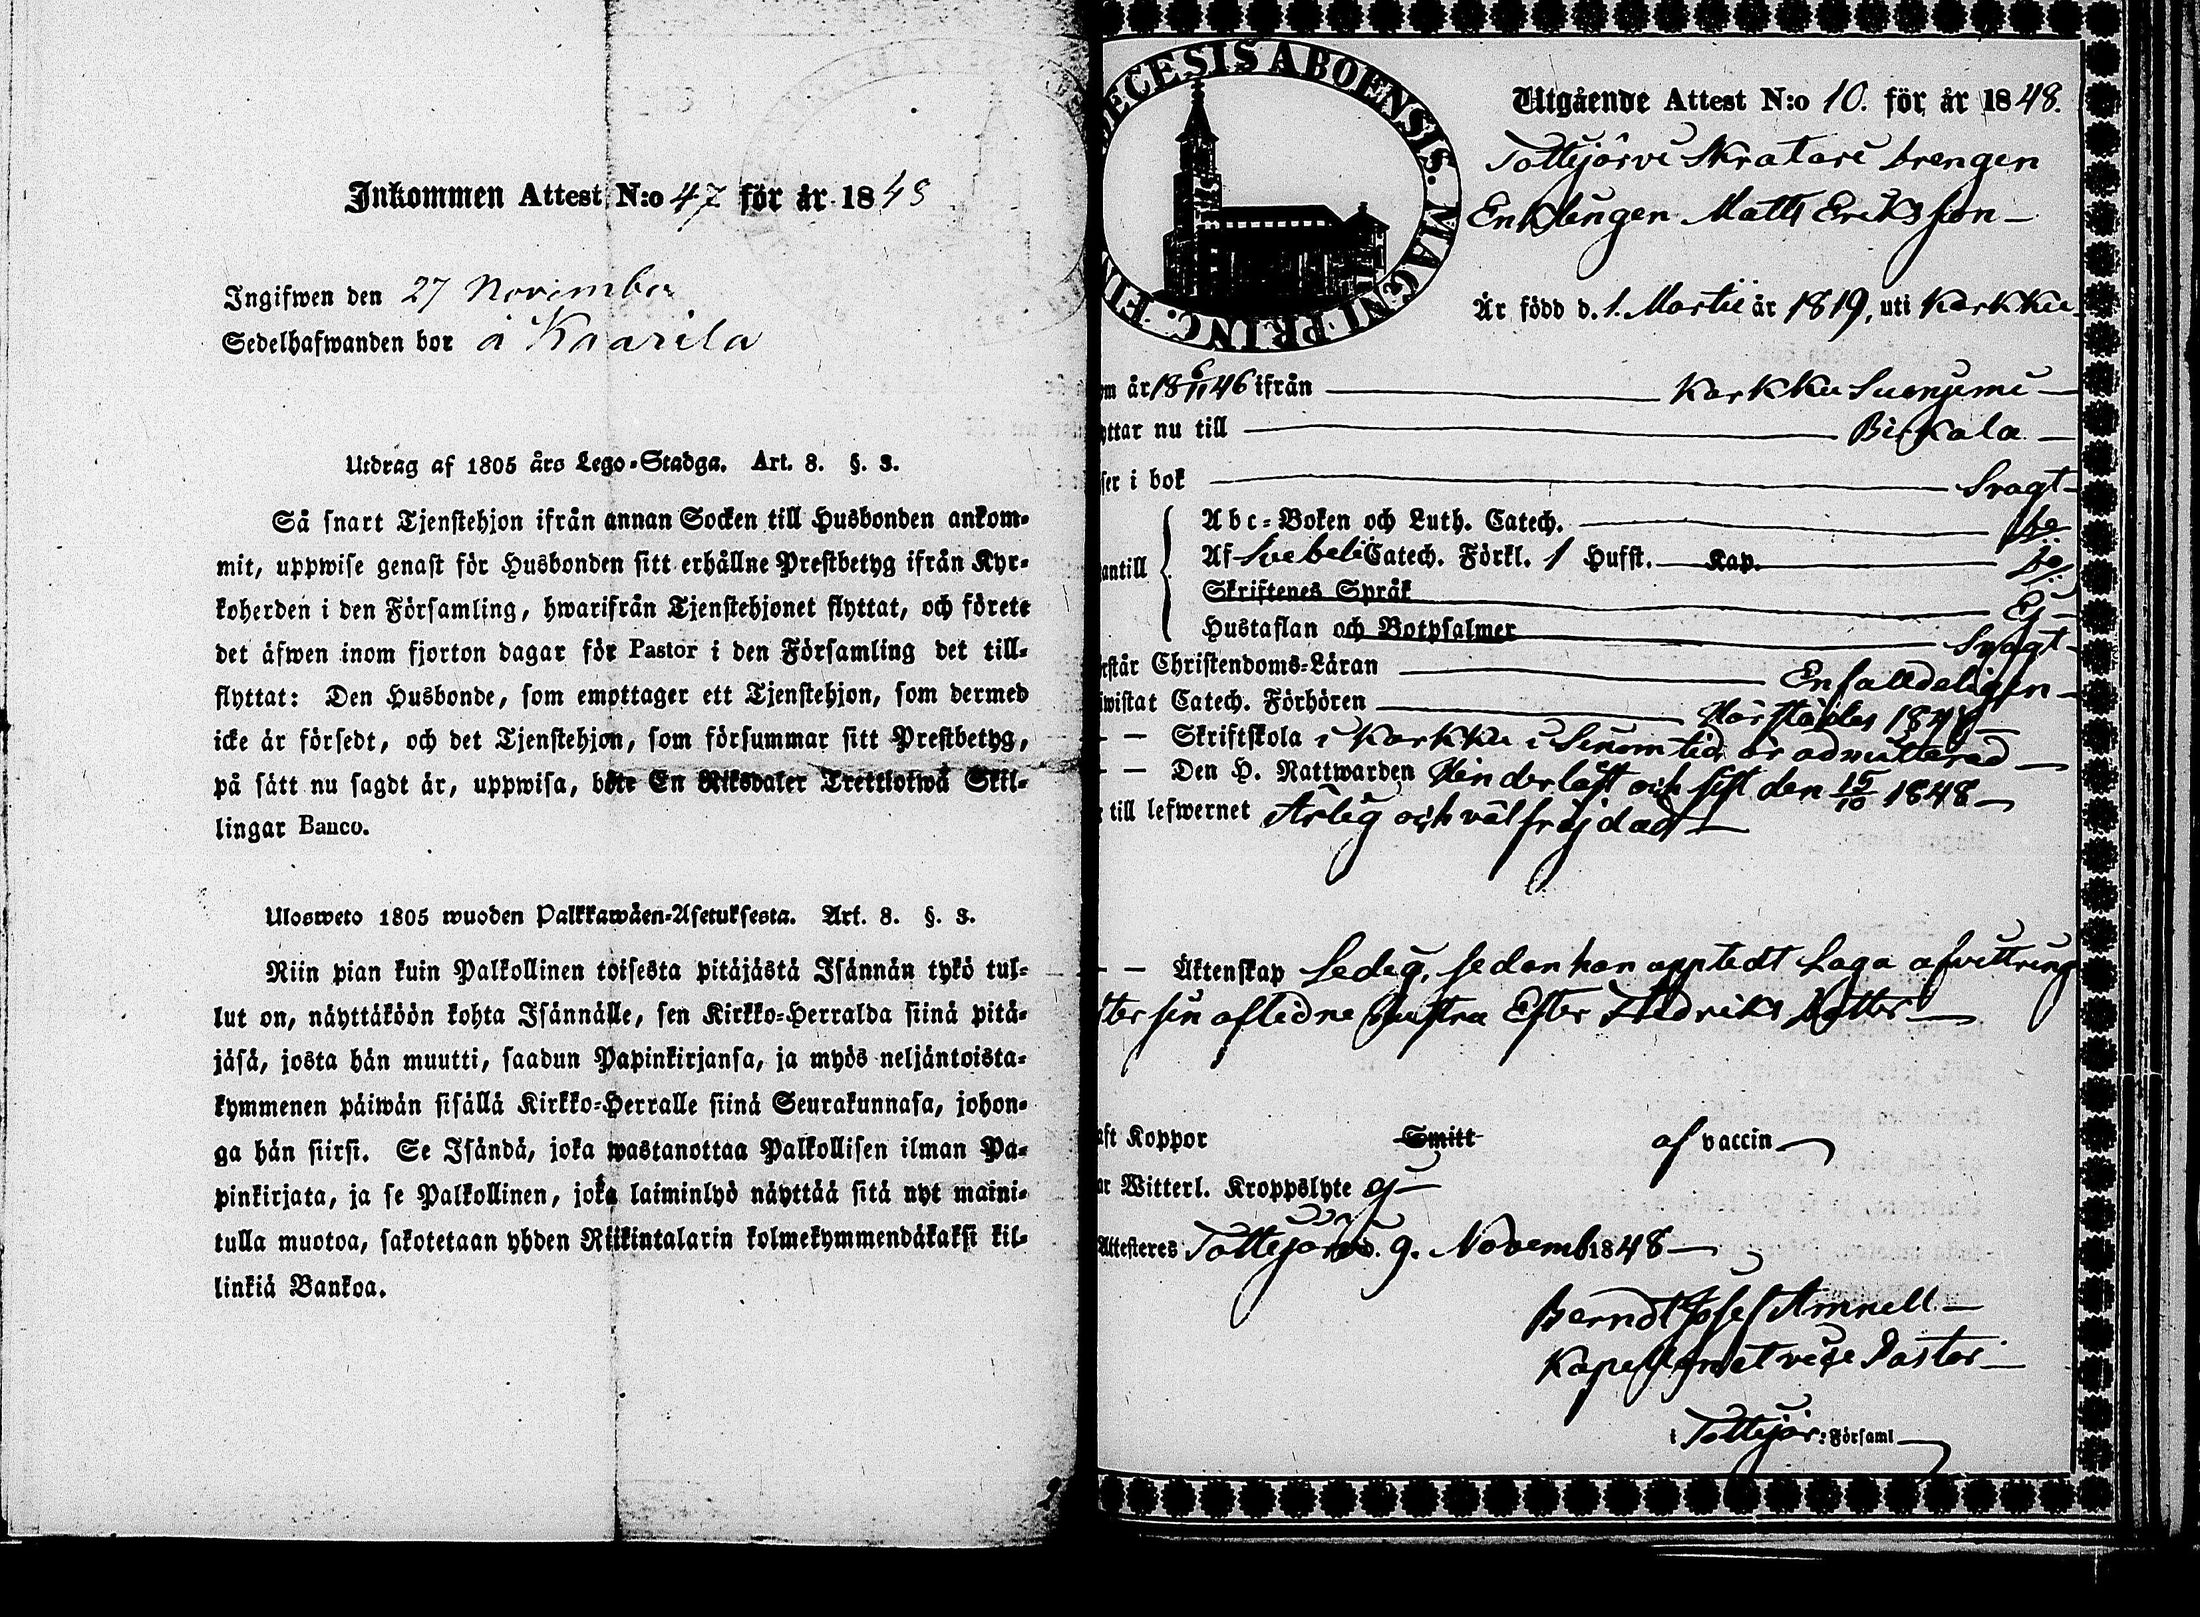 Inkommen Attest N:o 47 för år 1848
Ingifwen den 27 November
Sedelhafwanden bor å Kaarila
Utdrag af 1805 års Lego-Stadga. Art. 8. §. 3.
Så snart Tjenstehjon ifrån annan Socken till Husbonden ankom-
mit, uppwise genast för Husbonden sitt erhållne Prestbetyg ifrån Kyr-
koherden i den Församling, hwarifrån Tjenstehjonet flyttat, och förete
det äfwen inom fjorton dagar för Pastor i den Församling det till-
flyttat: Den Husbonde, som emottager ett Tjenstehjon, som dermed
icke är försedt, och det Tjenstehjon, som försummar sitt Prestbetyg,
på sätt nu sagdt är, uppwisa, böte En Riksdaler Trettiotwå Skil-
lingar Banco.
Ulosweto 1805 wuoden Palkkawäen-Asetuksesta. Art. 8. §. 3.
Niin pian kuin Palkollinen toisesta pitäjästä Isännän tykö tul-
lut on, näyttäköön kohta Isännälle, sen Kirkko-Herralda siinä pitä-
jäsä, josta hän muutti, saadun Papinkirjansa, ja myös neljäntoista-
kymmenen päiwän sisällä Kirkko-Herralle siinä Seurakunnasa, johon-
ga hän siirsi. Se Isändä, joka wastanottaa Palkollisen ilman Pa-
pinkirjata, ja se Palkollinen, joka laiminlyö näyttää sitä nyt maini-
tulla muotoa, sakotetaan yhden Riikintalarin kolmekymmendäkaksi kil-
linkiä Bankoa.
DECESIS ABOENSIS. MAGNI PRINC. FIN
Utgående Attest N:o 10. för år 1848.
Tottijärvi Skratari drengen
Enklingen Matts Eriksson
Är född d. 1. Martii år 1819, uti Karkku
om år 18 6/11 46 ifrån Karkku Suonjemi
yttar nu till Birkala
ser i bok Svagt
antill
Abc-Boken och Luth. Catech. do
Af Svebeli Catech. Förkl. 1 Hufst. Kap. do
Skriftenes Språk Ej
Hustaflan och Botpsalmer Svagt
rstår Christendoms-Läran Enfalldeligen
iwistat Catech. Förhören Härstädes 1848
— — Skriftskola i Karkku i sinom tid är admitterad
— — Den H. Nattwarden Hinderlöst och sist den 15/10 1848
r till lefwernet Ärlig och välfräjdad
— — Äktenskap Ledig, sedan han opptedt Laga afvittring
fter sin aflidne hustru Ester Fredriks dotter
aft Koppor Smitt af vaccin
ar Witterl. Kroppslyte ej
Attesteres Tottijärvi d. 9. Novemb 1848
Berndt Josef Amnell
Kapellan et vice Pastor
i Tottijär: Församl